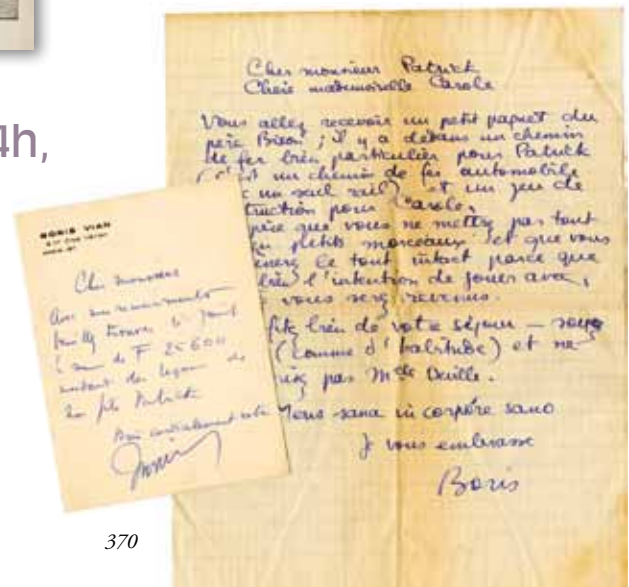 4h,
Cher monsieur Patrick
Chère mademoiselle Carole
Vous allez recevoir un petit paquet du
père Bison ; il y a dedans un chemin
de fer bien particulier pour Patrick
est un chemin de fer automobile
un seul rail) et un jeu de
truction pour Carole,
père que vous ne mettrez pas tout
en petits morceaux et que vous
le tout intact parce que
bien l'intention de jouer avec,
vous serez revenus.
fitez bien de votre séjour — soyez
(comme d'habitude) et ne
pas Mlle Deville.
Mens sana in corpore sano
Je vous embrasse
Boris
BORIS VIAN
Cher monsieur
Avec mes remerciements
trouver ci joint
la somme de F 25600
montant des leçons de
mon fils Patrick
Bien cordialement votre
370